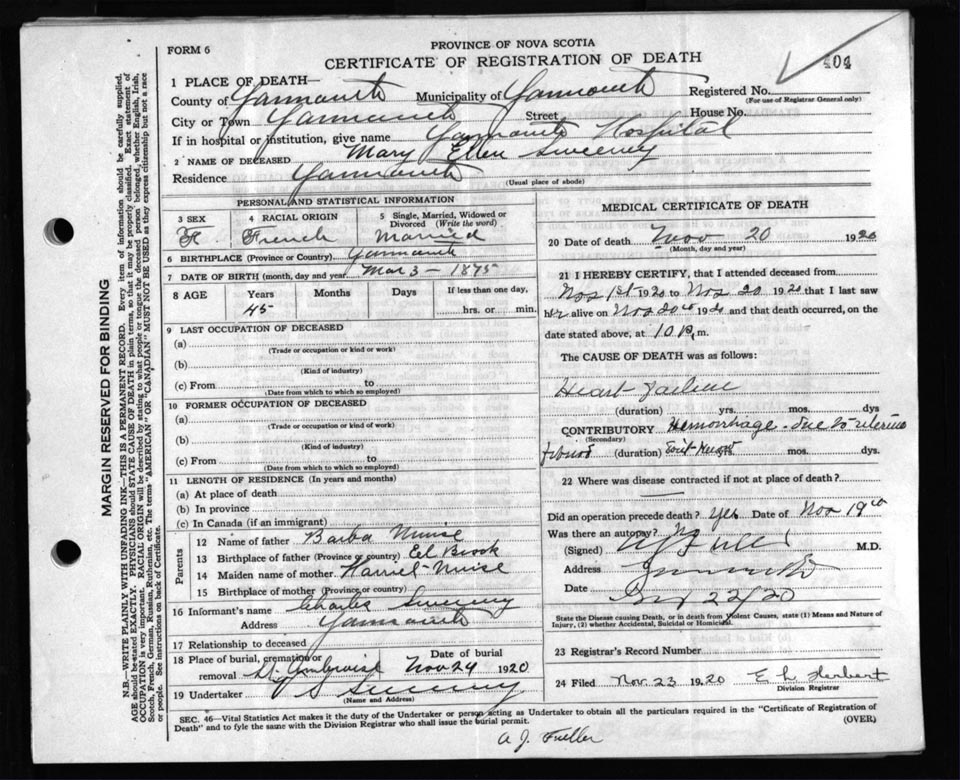 FORM 6
PROVINCE OF NOVA SCOTIA
CERTIFICATE OF REGISTRATION OF DEATH
404
1 PLACE OF DEATH—
County of Yarmouth Municipality of Yarmouth Registered No.
(For use of Registrar General only)
City or Town Yarmouth Street House No.
If in hospital or institution, give name Yarmouth Hospital
2 NAME OF DECEASED Mary Ellen Sweeney
Residence Yarmouth
(Usual place of abode)
PERSONAL AND STATISTICAL INFORMATION
3 SEX 4 RACIAL ORIGIN 5 Single, Married, Widowed or Divorced (Write the word)
F French Married
6 BIRTHPLACE (Province or Country) Yarmouth
7 DATE OF BIRTH (month, day and year) Mar 3 – 1875
8 AGE Years Months Days If less than one day,
45 hrs. or min.
9 LAST OCCUPATION OF DECEASED
(a)
(Trade or occupation or kind of work)
(b)
(Kind of industry)
(c) From to
(Date from which to which so employed)
10 FORMER OCCUPATION OF DECEASED
(a)
(Trade or occupation or kind of work)
(b)
(Kind of industry)
(c) From to
(Date from which to which so employed)
11 LENGTH OF RESIDENCE (In years and months)
(a) At place of death
(b) In province
(c) In Canada (if an immigrant)
Parents
12 Name of father Barba Muise
13 Birthplace of father (Province or country) Eel Brook
14 Maiden name of mother Harriet Muise
15 Birthplace of mother (Province or country)
16 Informant's name Charles Sweeney
Address Yarmouth
17 Relationship to deceased
18 Place of burial, cremation or removal Date of burial
St. Ambroise Nov 24 1920
19 Undertaker V S Sweeney
(Name and Address)
MEDICAL CERTIFICATE OF DEATH
20 Date of death Nov 20 1920
(Month, day and year)
21 I HEREBY CERTIFY, that I attended deceased from
Nov 1st 1920 to Nov 20 1920 that I last saw
her alive on Nov 20th 1920 and that death occurred, on the
date stated above, at 10 P. m.
The CAUSE OF DEATH was as follows:
Heart Failure
(duration) yrs. mos. dys
CONTRIBUTORY Hemorrhage – due to uterine
(Secondary)
fibroid (duration) mos. dys.
22 Where was disease contracted if not at place of death?
Did an operation precede death? Yes Date of Nov 19th
Was there an autopsy? No
(Signed) M.D.
Address Yarmouth
Date 22/20
State the Disease causing Death, or in death from Violent Causes, state (1) Means and Nature of
Injury, (2) whether Accidental, Suicidal or Homicidal.
23 Registrar's Record Number
24 Filed Nov. 23 1920 E L Herbert
Division Registrar
SEC. 46—Vital Statistics Act makes it the duty of the Undertaker or person acting as Undertaker to obtain all the particulars required in the "Certificate of Registration of
Death" and to fyle the same with the Division Registrar who shall issue the burial permit. (OVER)
A. J. Fuller
MARGIN RESERVED FOR BINDING
N.B.—WRITE PLAINLY WITH UNFADING INK—THIS IS A PERMANENT RECORD. Every item of information should be carefully supplied.
AGE should be stated EXACTLY. PHYSICIANS should STATE CAUSE OF DEATH in plain terms, so that it may be properly classified. Exact statement of
OCCUPATION is very important. RACIAL ORIGIN will be described by stating to what people or tongue the deceased person belonged, whether English, Irish,
Scotch, French, German, Russian, Ruthenian, etc. The terms "AMERICAN" OR "CANADIAN" MUST NOT BE USED as they express citizenship but not a race
or people. See instructions on back of Certificate.